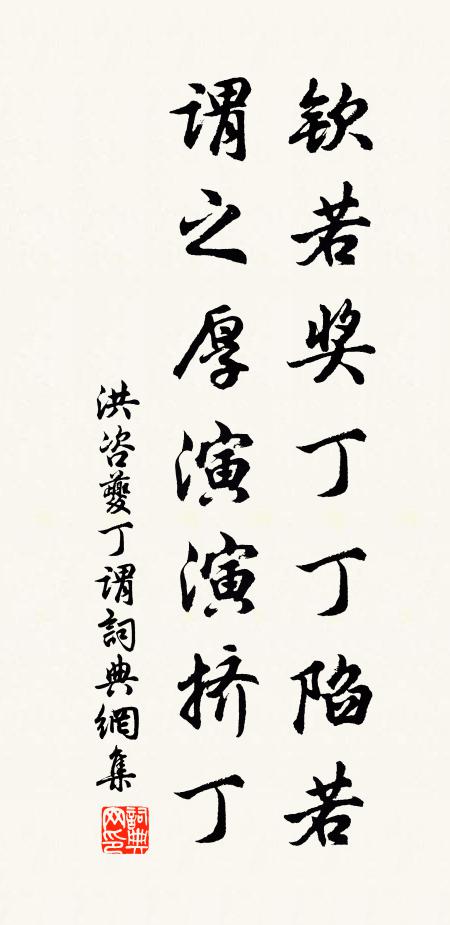 钦若奖丁丁陷若
谓之厚演演挤丁
洪咨夔丁谓詞典網集
詞典
网印